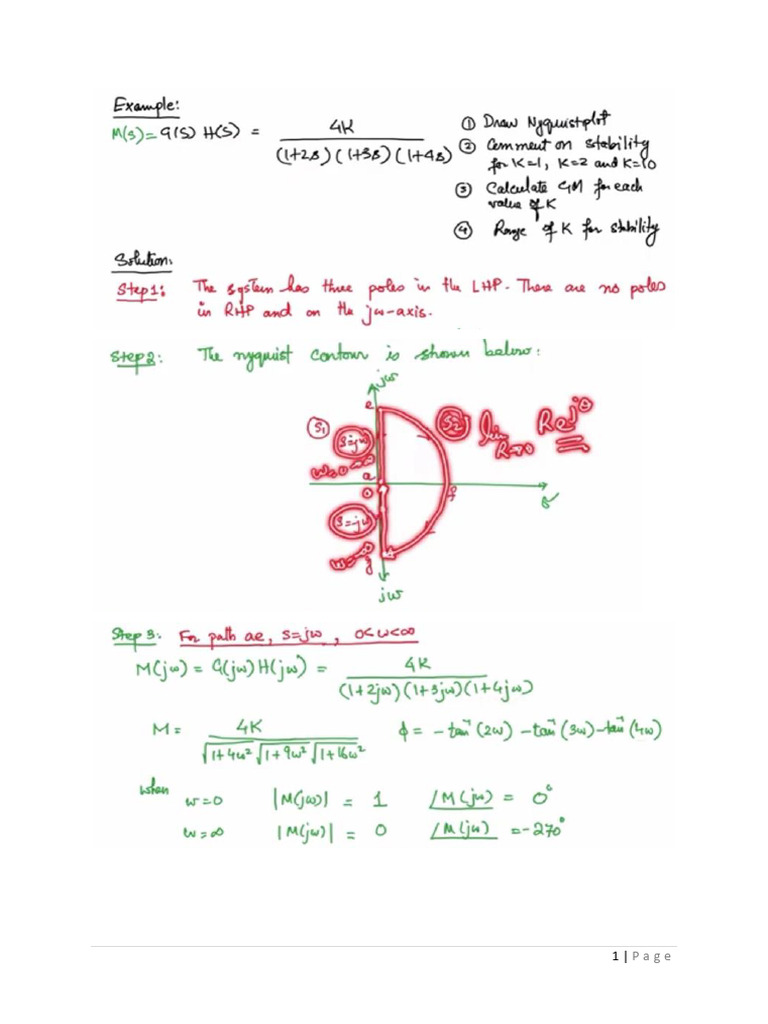 Example:
M(s)= G(S) H(S) = 4K / (1+2s)(1+3s)(1+4s)
① Draw Nyquist plot
② Comment on stability
for K=1, K=2 and K=10
③ Calculate GM for each
value of K
④ Range of K for stability
Solution:
Step 1: The system has three poles in the LHP. There are no poles
in RHP and on the jω-axis.
Step 2: The nyquist contour is shown below:
jω
e
S1
S2
S=jω
ω=0→∞
a
0
f
σ
S=-jω
g
jω
Step 3: For path ae, S=jω, 0<ω<∞
M(jω) = G(jω) H(jω) = 4K / (1+2jω)(1+3jω)(1+4jω)
M = 4K / √1+4ω² √1+9ω² √1+16ω²
ϕ = -tan⁻¹(2ω) -tan⁻¹(3ω) -tan⁻¹(4ω)
when
ω=0 |M(jω)| = 1 /M(jω) = 0°
ω=∞ |M(jω)| = 0 /M(jω) = -270°
1 | Page